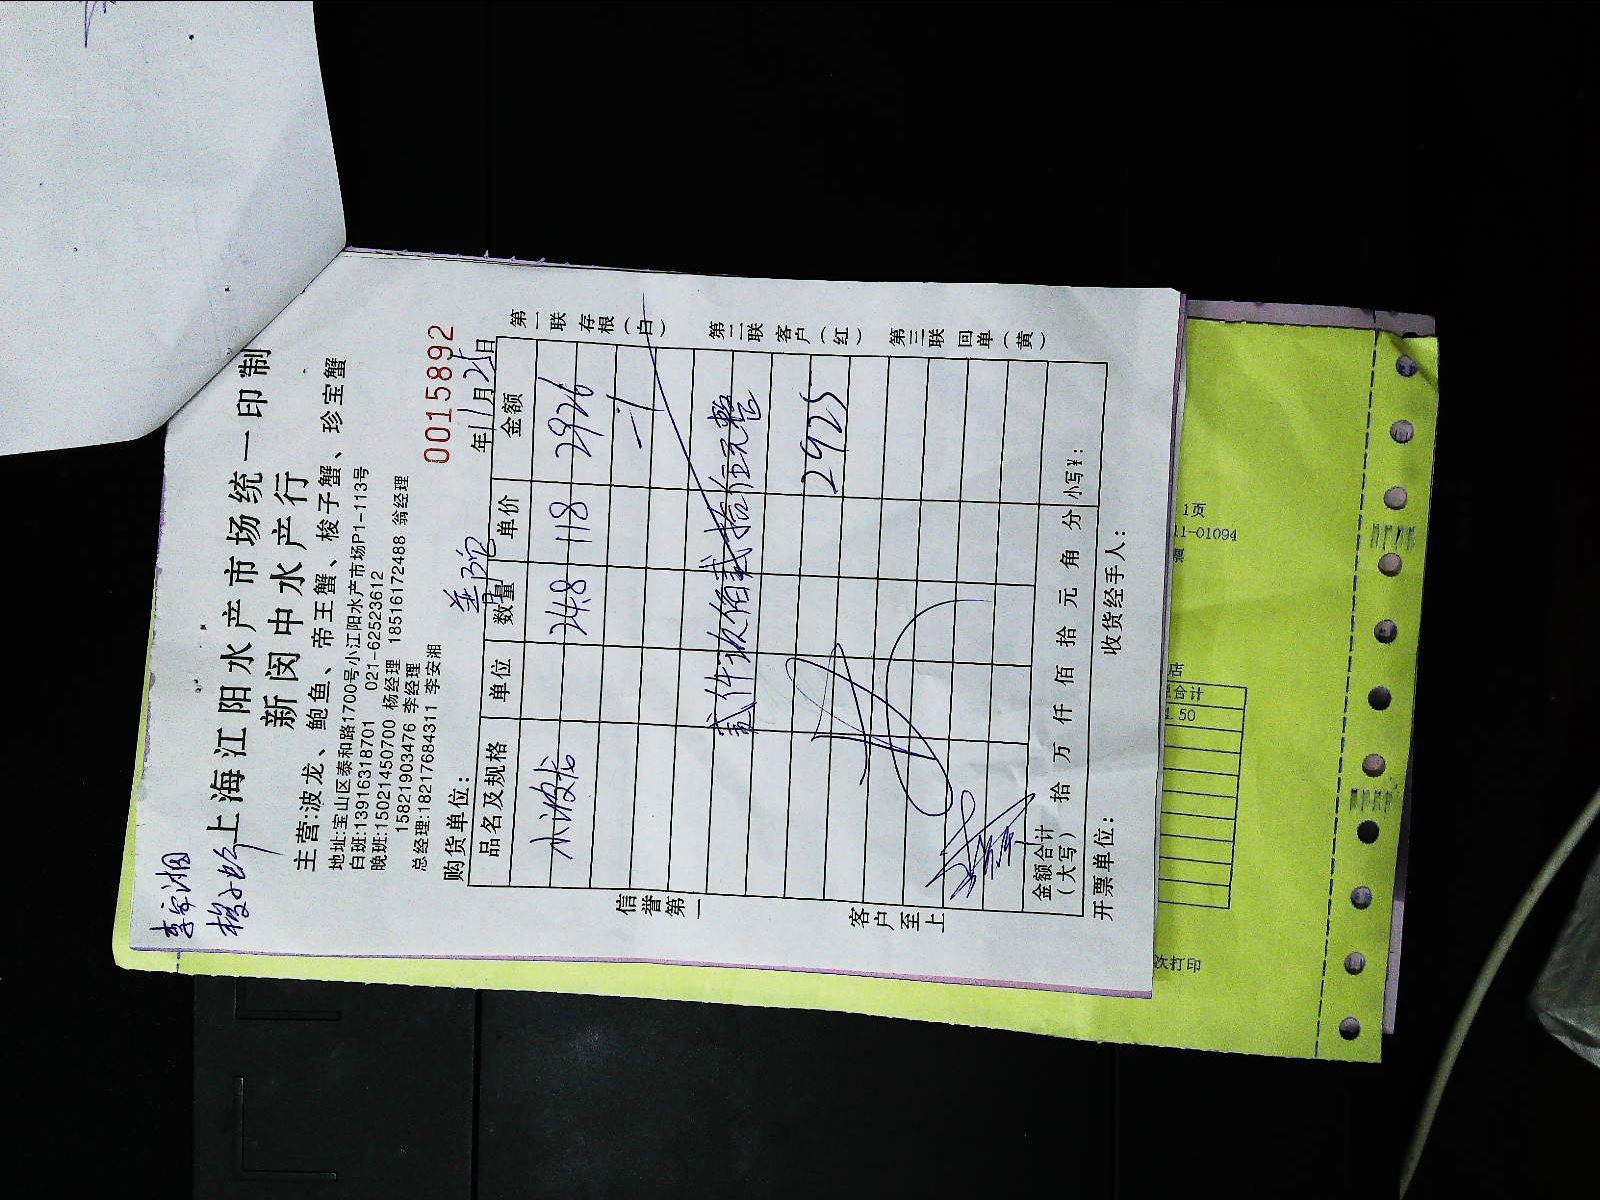 李安湘
上海江阳水产市场统一印制
新闵中水产行
主营:波龙、鲍鱼、帝王蟹、梭子蟹、珍宝蟹
地址:宝山区泰和路1700号小江阳水产市场P1-113号
白班:13916318701 021-62523612
晚班:15021450700 杨经理 18516172488 翁经理
15821903476 李经理
总经理:18217684311 李安湘
0015892
购货单位:
年11月25日
品名及规格 单位 数量 单价 金额
小波龙 24.8 118 2926
-1
贰仟玖佰贰拾伍元整
2925
金额合计
(大写) 拾 万 仟 佰 拾 元 角 分 小写¥:
开票单位: 收货经手人:
信誉第一
客户至上
第一联 存根(白)
第二联 客户(红)
第三联 回单(黄)
1页
11-01094
店
合计
1.50
次打印